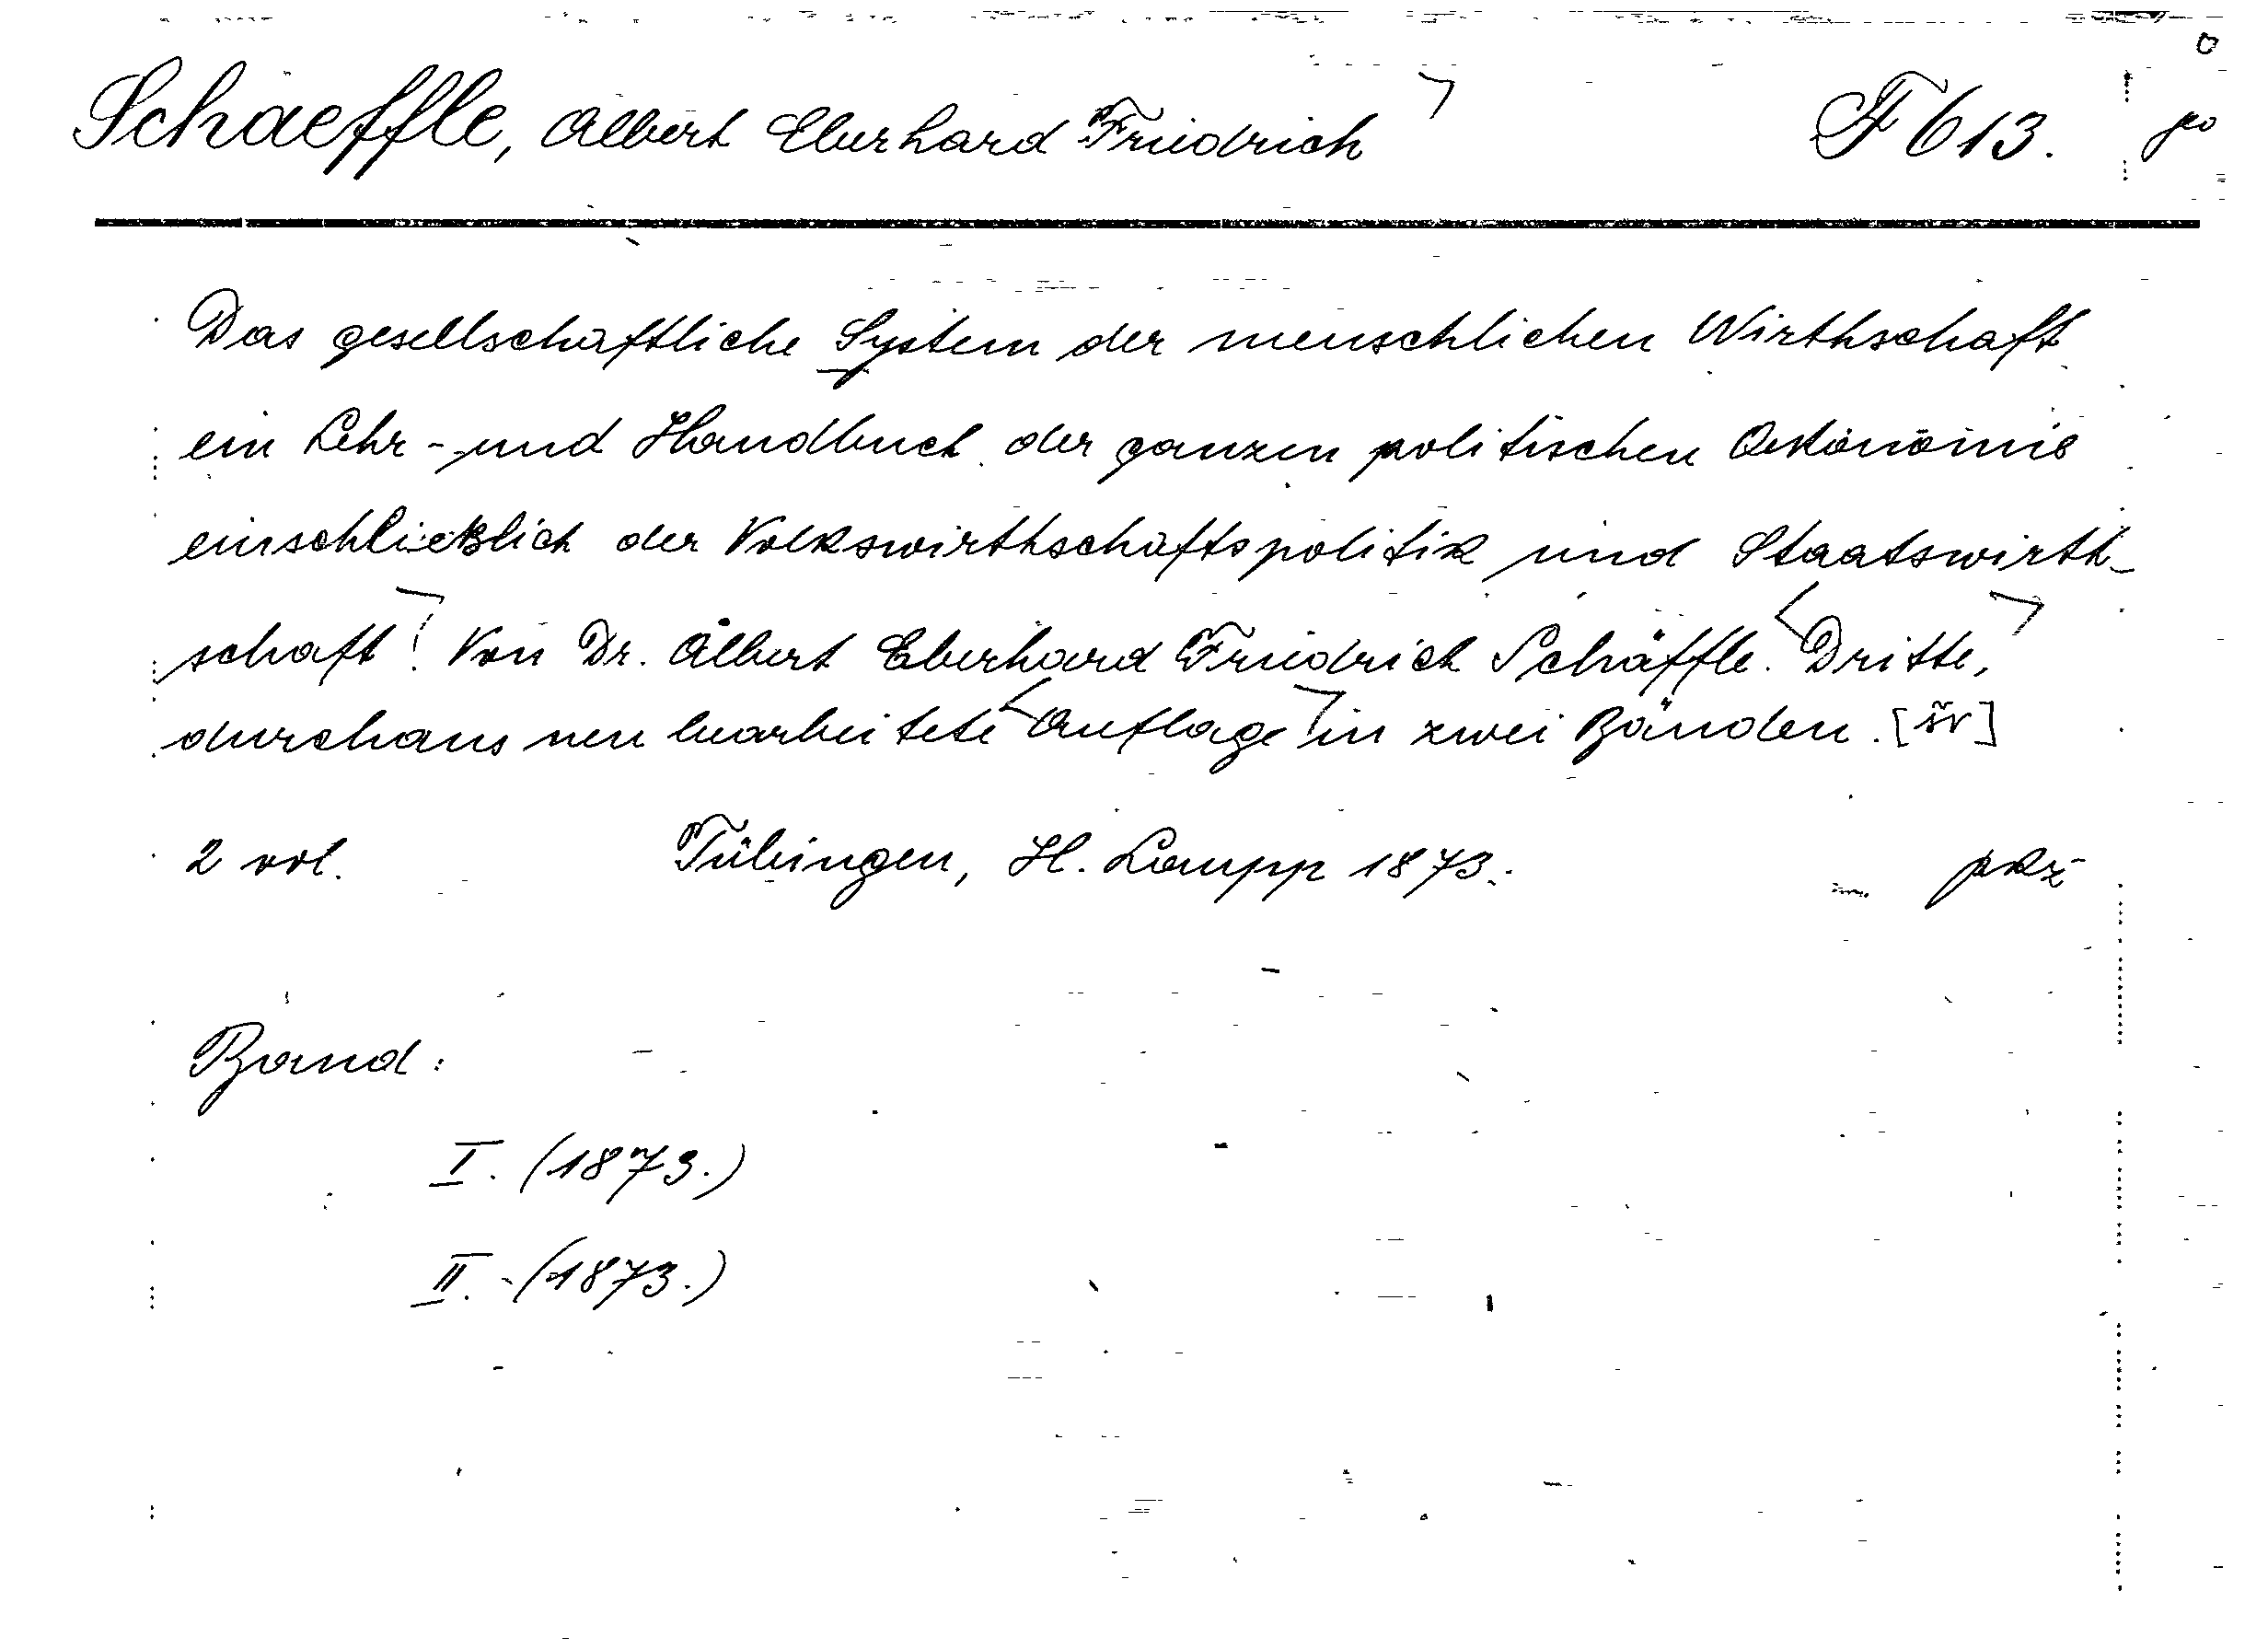 Schaeffle, Albert Eberhard Friedrich F 613.
Das gesellschaftliche System der menschlichen Wirthschaft
ein Lehr- und Handbuch der ganzen politischen Oekonomie
einschließlich der Volkswirthschaftspolitik und Staatswirth-
schaft. Von Dr. Albert Eberhard Friedrich Schäffle. Dritte,
durchaus neu bearbeitete Auflage in zwei Bänden. [šv]
2 vol. Tübingen, H. Laupp 1873. pkž
Band:
I. (1873.)
II. (1873.)